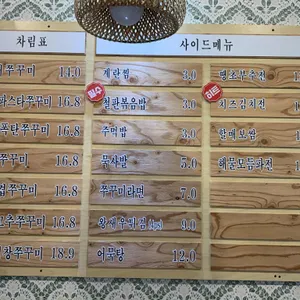 차림표
쭈꾸미 14.0
파스타쭈꾸미 16.8
폭탄쭈꾸미 16.8
쭈꾸미 16.8
쭈꾸미 16.8
고추쭈꾸미 16.8
곱창쭈꾸미 18.9
사이드메뉴
계란찜 3.0
필수
철판볶음밥 3.0
주먹밥 3.0
묵사발 5.0
쭈꾸미라면 7.0
왕새우튀김 9.0
어묵탕 12.0
땡초부추전
히트
치즈김치전
할매보쌈
해물모듬파전